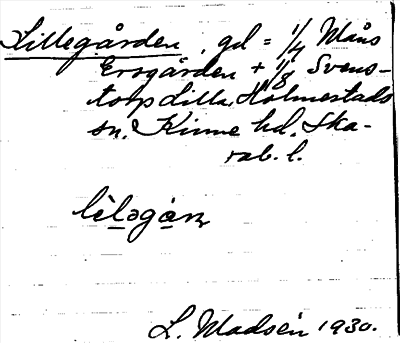 Lillegården, gd = 1/4 Måns
Ersgården + 1/8 Svens-
torp Lilla, Holmestads
sn. Kinne hd. Ska-
rab. l.
L. Madsén 1930.